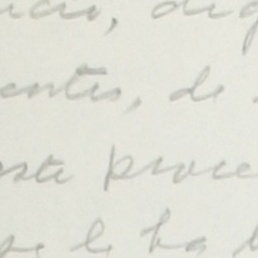 icio, dig
entes, de
este proce
se le ha l